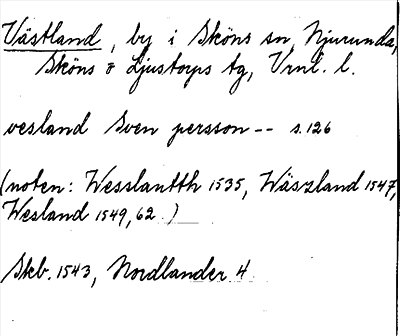 Västland, by i Sköns sn, Njurunda,
Sköns & Ljustorps tg, Vrnl. l.
vesland Sven persson -- s. 126
(noten: Wesslantth 1535, Wäszland 1547,
Wesland 1549, 62.)
Skb. 1543, Nordlander 4